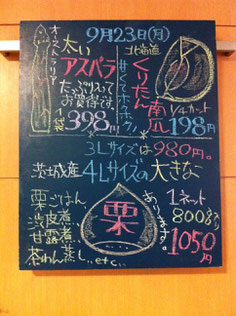 9月23日(月)
オーストラリア
太い
アスパラ
たっぷり入って
お買得です。
1袋
398円
北海道
くりたん
南瓜
甘くてホクホク!
1/4カット
198円
3Lサイズは980円。
茨城産
4Lサイズの大きな
栗
あります。
栗ごはん
渋皮煮
甘露煮
茶わん蒸し..etc..
1ネット
800g入り
1050円